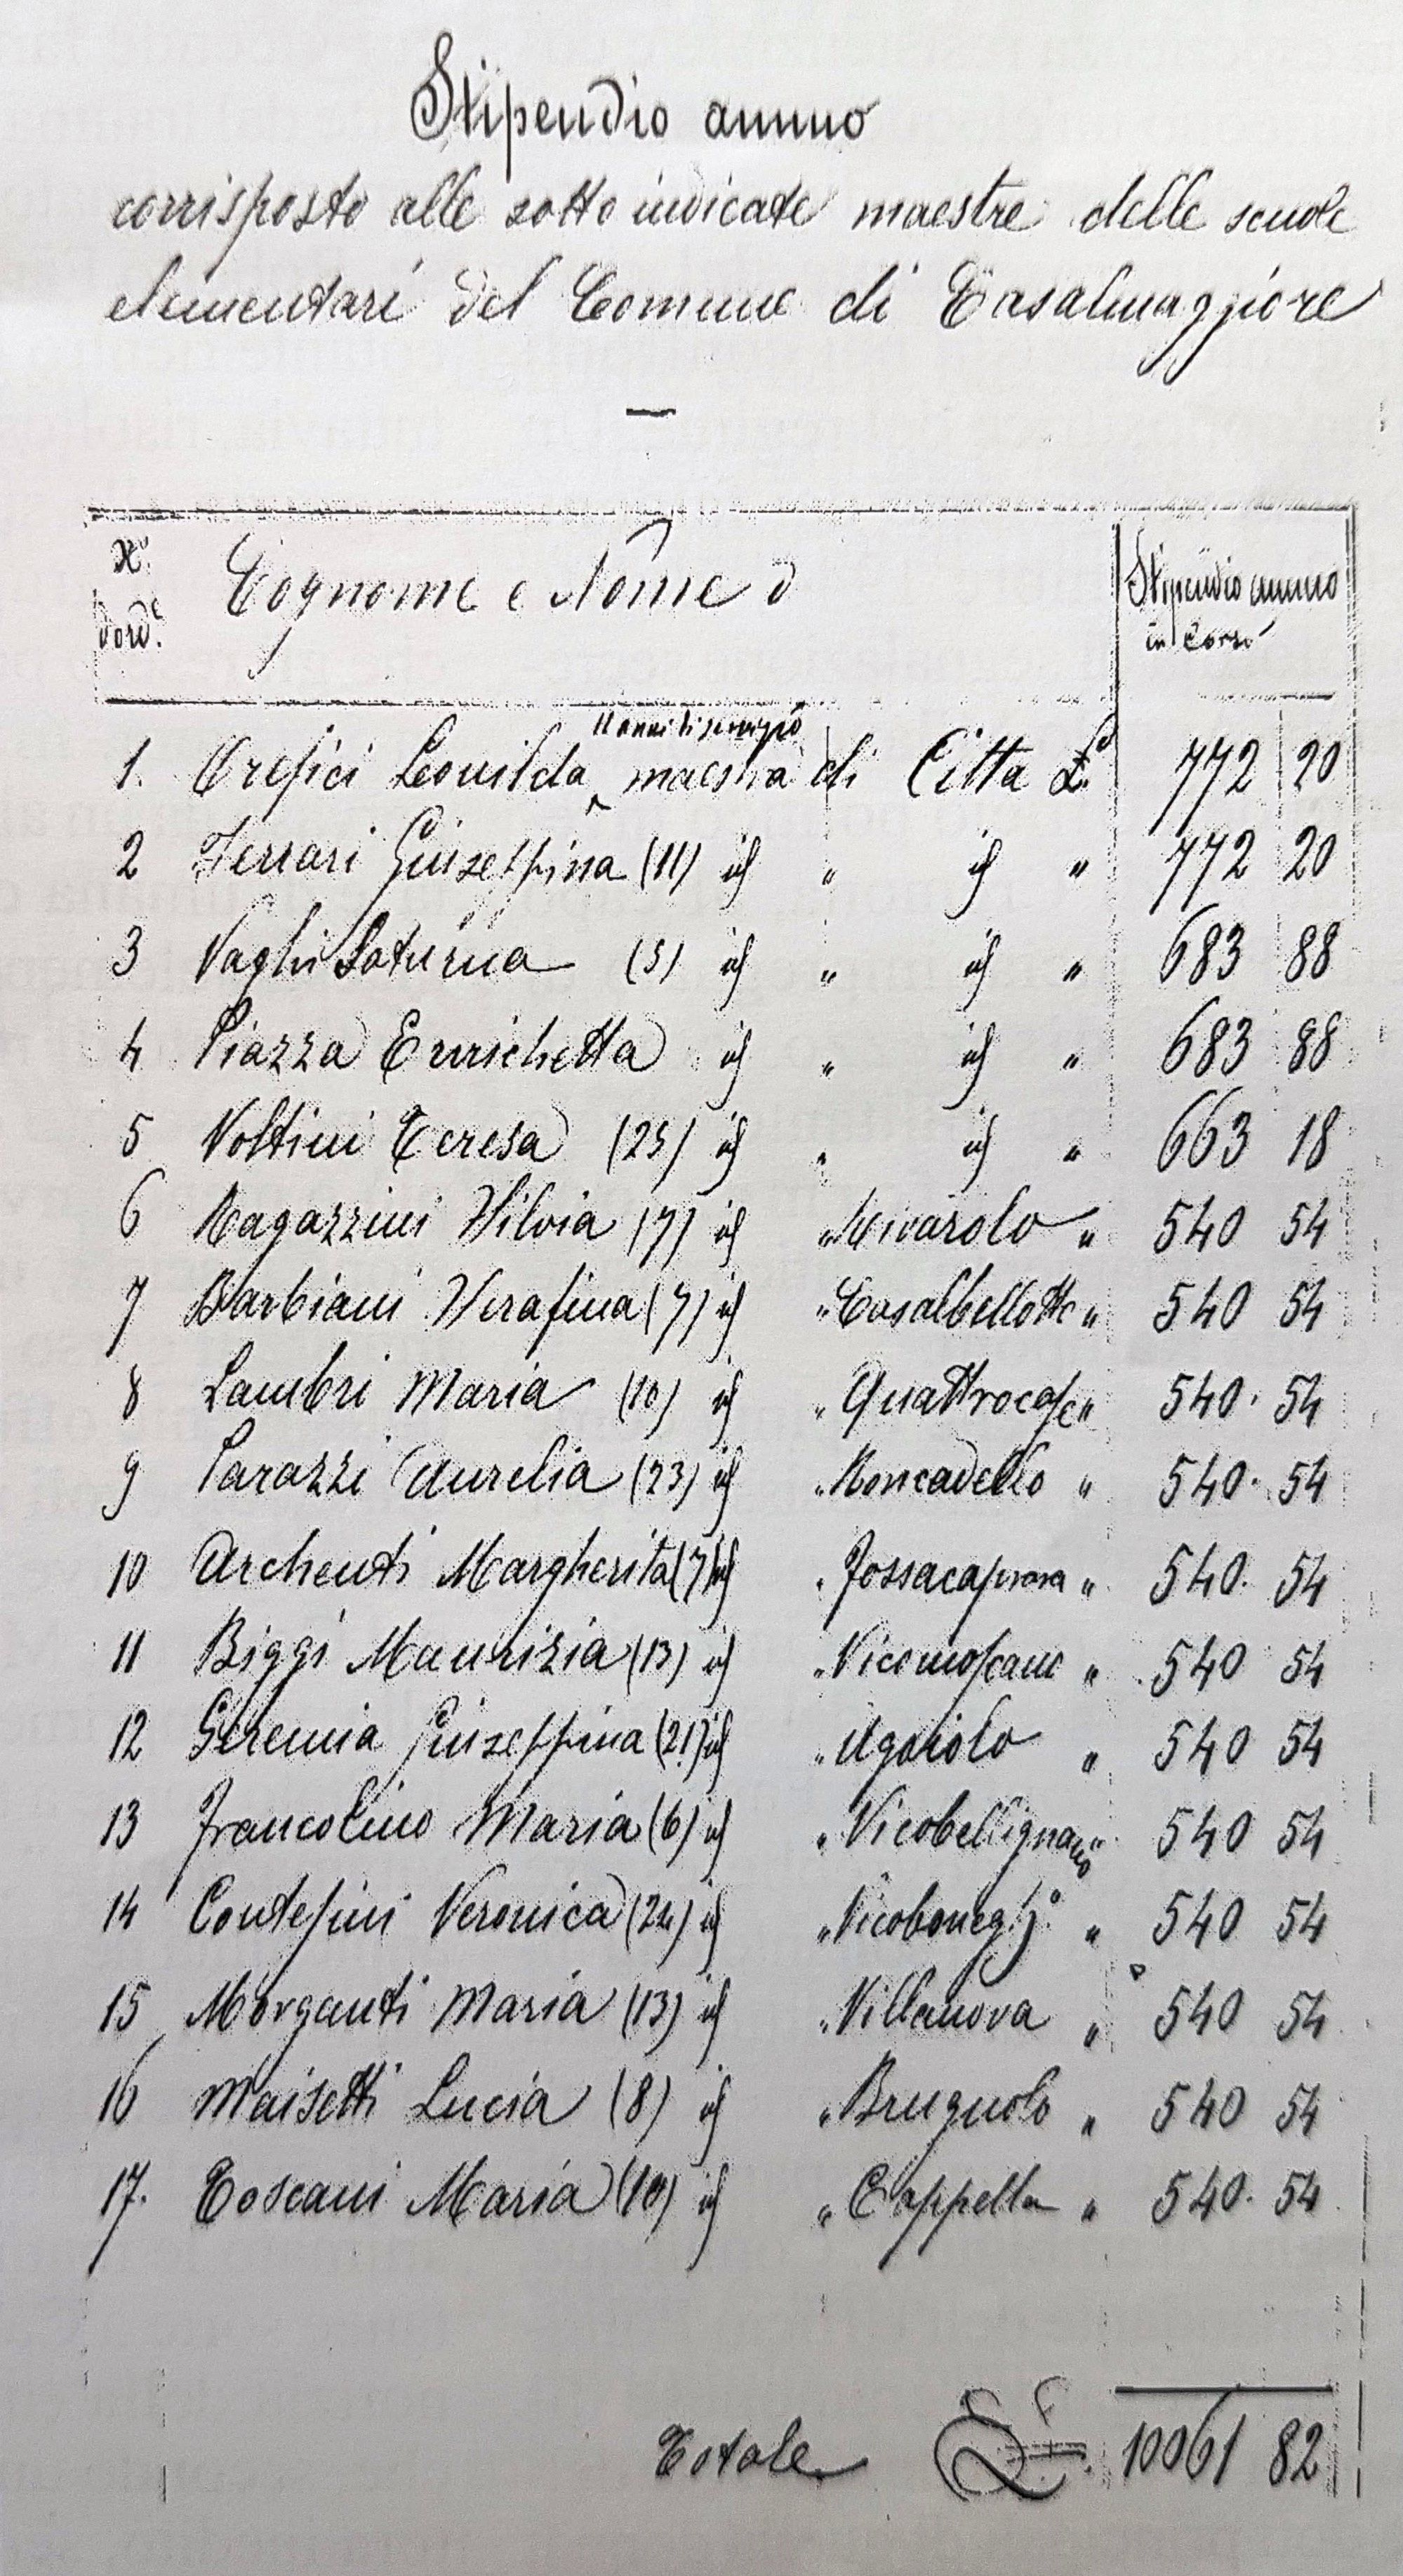 Stipendio annuo
corrisposto alle sotto indicate maestre delle scuole
elementari del Comune di Casalmaggiore
N.° d'ord.e Cognome e Nome Stipendio annuo in corso
11 anni di servizio
1. Orefici Leonilda maestra di Città L. 772 20
2 Ferrari Giuseppina (11) id " id " 772 20
3 Vaghi Saturnia (5) id " id " 683 88
4 Piazza Enrichetta id " id " 683 88
5 Voltini Teresa (25) id " id " 663 18
6 Ragazzini Silvia (7) id " Rivarolo " 540 54
7 Barbiani Serafina (7) id " Casalbellotto " 540 54
8 Lambri Maria (10) id " Quattrocase " 540. 54
9 Parazzi Aurelia (23) id " Roncadello " 540. 54
10 Archenti Margherita (7) id " Fossacaprara " 540. 54
11 Biggi Maurizia (13) id " Vicomoscano " 540 54
12 Geremia Giuseppina (21) id " Agoiolo " 540 54
13 Francolino Maria (6) id " Vicobellignano " 540 54
14 Contesini Veronica (24) id " Vicoboneg. " 540 54
15 Morganti Maria (13) id " Villanova " 540 54
16 Maisetti Lucia (8) id " Brugnolo " 540 54
17. Toscani Maria (10) id " Cappella " 540. 54
Totale L. 10061 82